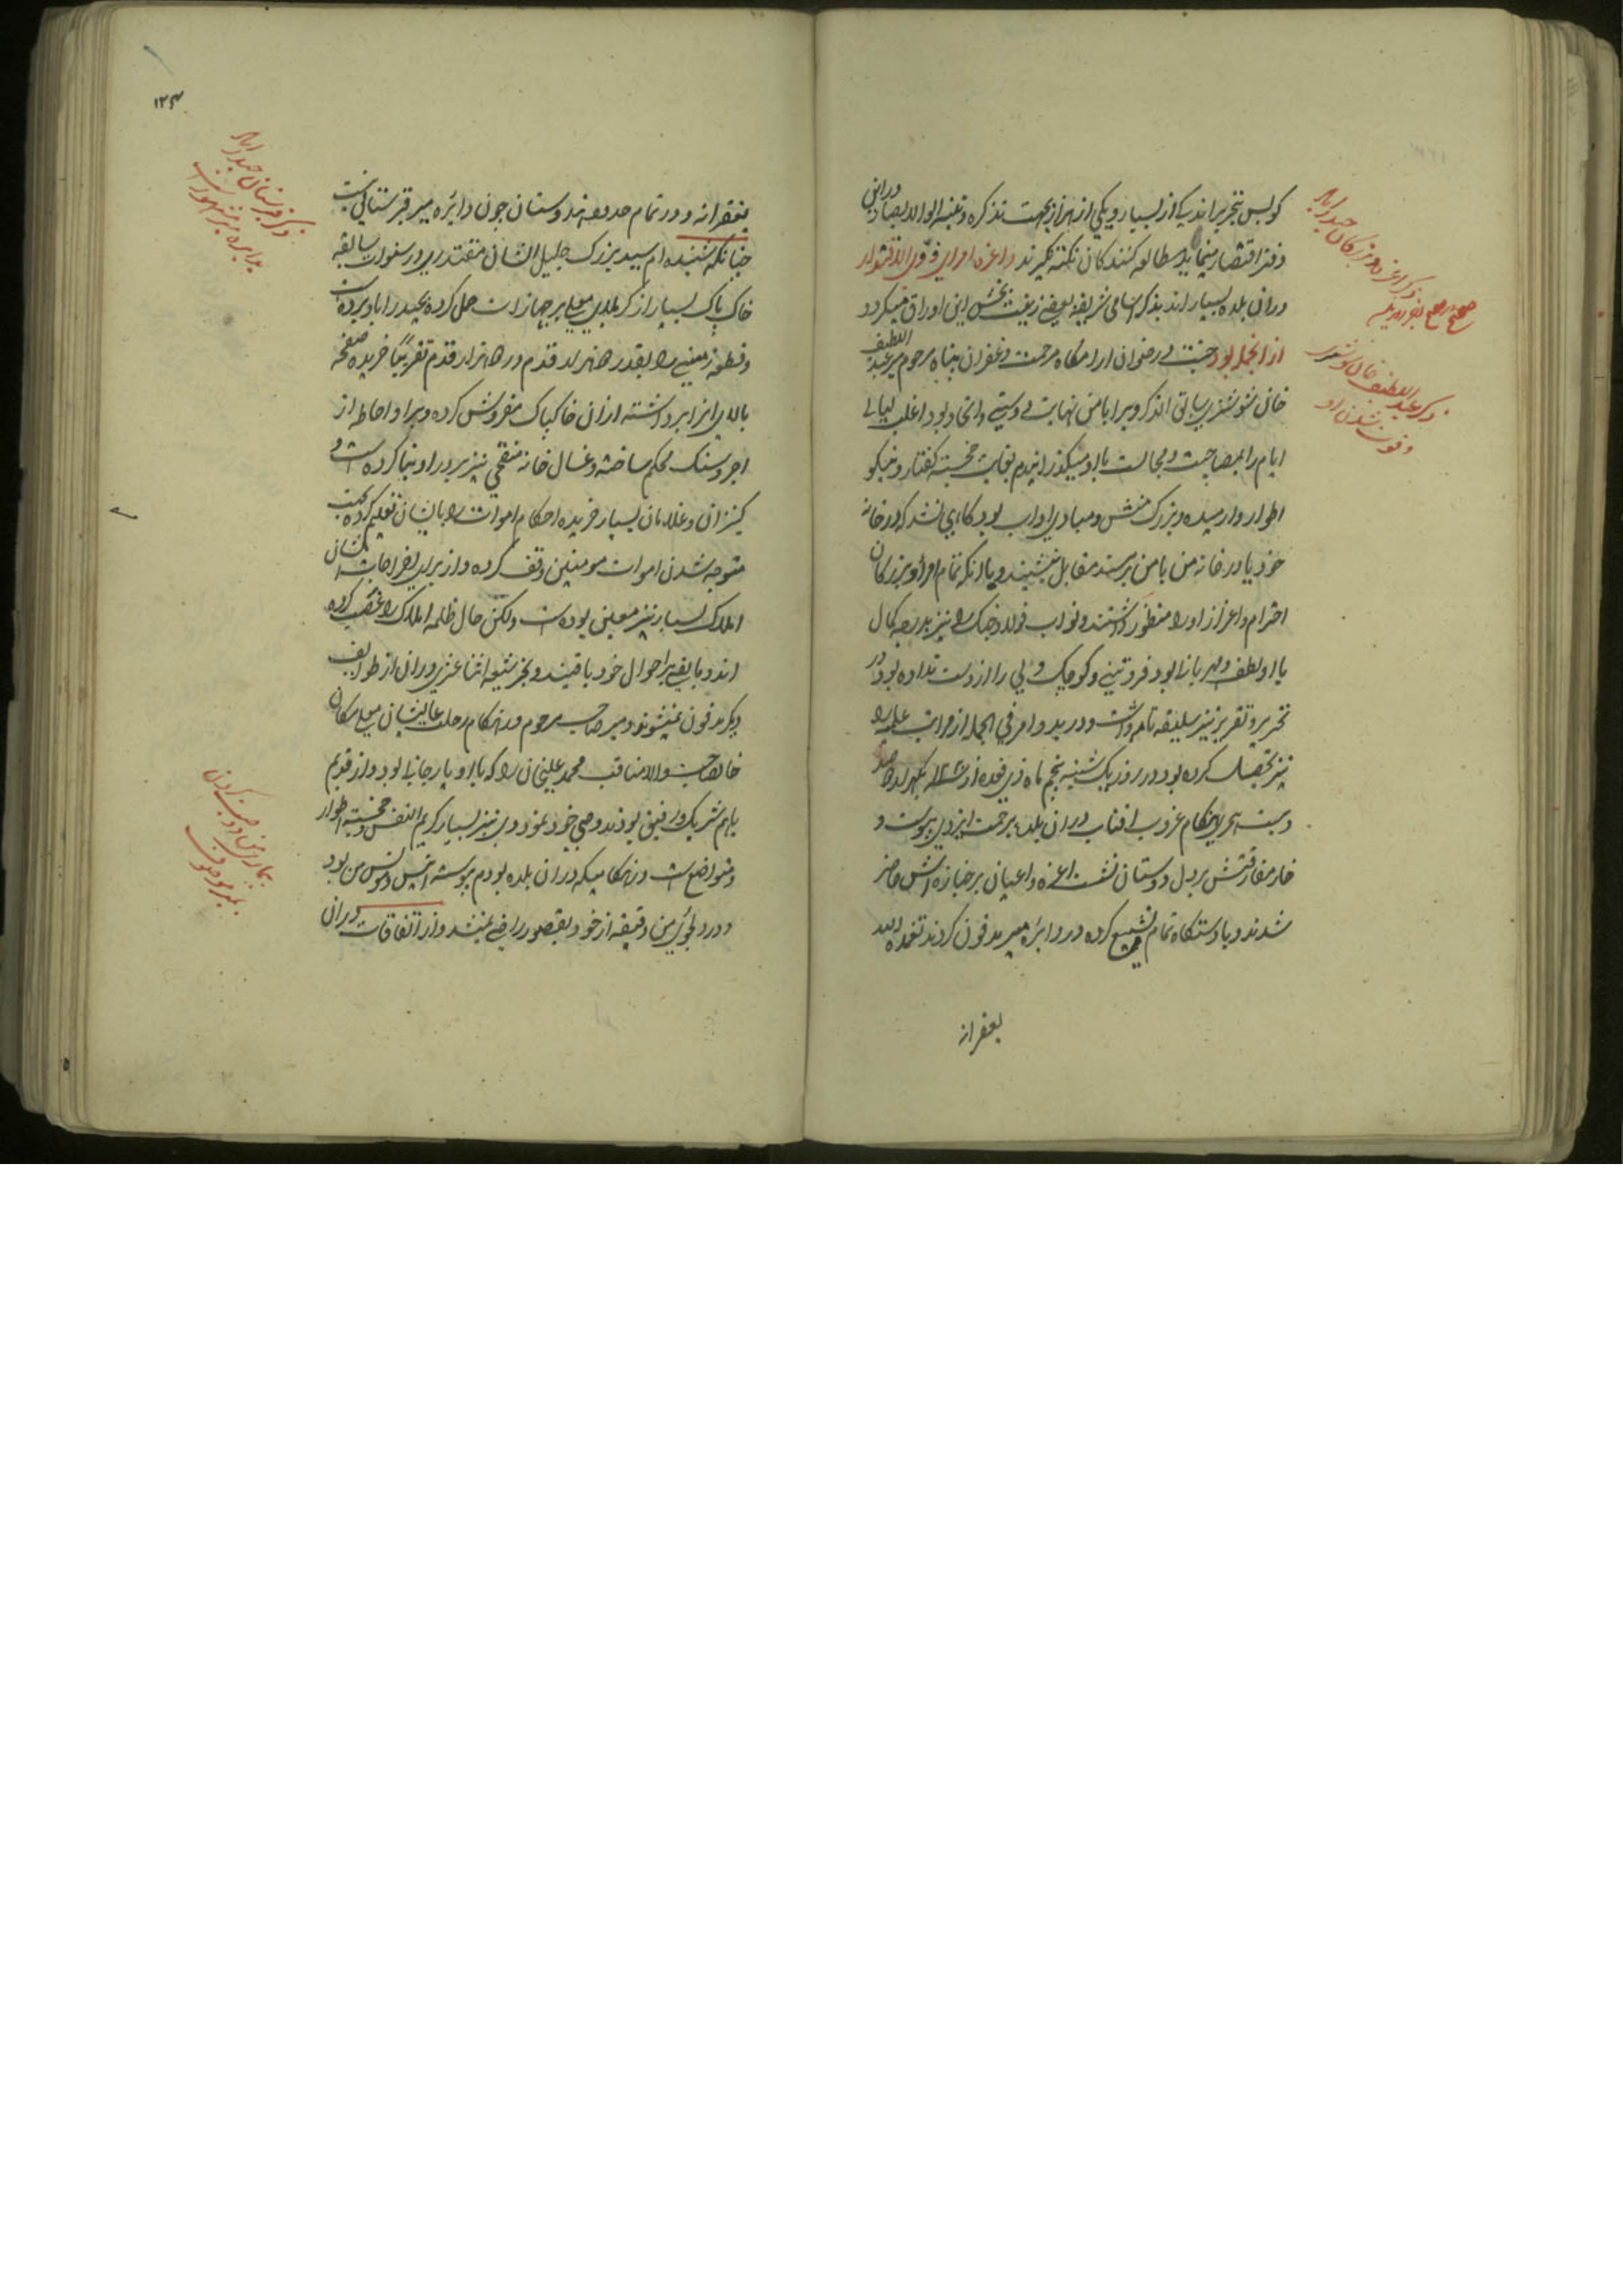 که پس بتحریر اندکی از بسیار و یکی از هزار بجهت تذکره و تنبیه اولو الابصار درین
دفتر اقتصار مینماید مطالعه کنندگان نکته نگیرند و اعزه و امرای ذوی الاقتدار
دران بلده بسیار اند بذکر اسامی شریفه بعضی زینت بخش این اوراق میگردد
از انجمله بود جنت و رضوان ارامگاه مرحمت و غفران پناه مرحوم میر عبد اللطیف
خان شوشتری سابق الذکر ویرا با من نهایت دوستی و اتحاد بود اغلب لیالی
ایام را بمصاحبت و مجالست با او میگذرانیدم بغایت خجسته گفتار و نیکو
اطوار وارسیده و بزرگ منش و مبادی اداب بود گاهی نشد که در خانه
خود یا در خانه من با من بر مسند مقابل بنشیند و با انکه تمام امرا و بزرگان
احترام و اعزاز او را منظور داشتند و نواب فولاد جنگ را نیز بدرجه کمال
با او لطف و مهربانی بود فروتنی و کوچک دلی را از دست نداده بود در
تحریر و تقریر نیز سلیقه تمام داشت و در بدو امر فی الجمله از مراتب علمیه را
نیز تحصیل کرده بود در روز یک شنبه پنجم ماه ذی قعده از سنه یکهزار و دو صد
و بیست هجری هنگام غروب افتاب دران بلده برحمت ایزدی پیوست و
خار مفارقتش بر دل دوستان نشست اعزه و اعیان بر جنازه اش حاضر
شدند و با دستگاه تمام تشییع کرده در دایره میر مدفون کردند تغمده الله
بغفرانه
بغفرانه و در تمام حدود هندوستان چون دایره میر قبرستانی نیست
چنانکه شنیده ام سید بزرگ جلیل الشان مقتدری در سنوات سابقه
خاک پاک بسیار از کربلای معلی بر جهازات حمل کرده بحیدراباد برده است
و قطعه زمینی را بقدر هزار قدم در هزار قدم تقریبًا خریده صفحه
بالای انرا برداشته از ان خاکپاک مفروش کرده و برا و احاطه از
اجر و سنگ محکم ساخته و غسال خانه منقحی نیز بر در او بنا کرده است و
کنیزان و غلامان بسیار خریده احکام اموات را بایشان تعلیم کرده بجهت
متوجه شدن اموات مومنین وقف کرده و از برای اخراجات ایشان
املاک بسیار نیز معین بوده است ولکن حال ظلمه املاک را غصب کرده
اند و مابقی بر احوال خود باقیند و بجز شیعه اثنا عشری دران از طوایف
دیگر مدفون نمیشوند و میر صاحب مرحوم در هنگام رحلت عالیشان معلی مکان
خانصاحب والامناقب محمد علیخان را که با او یار جانی بود و از قدیم
باهم شریک و رفیق بودند وصی خود نمود و وی نیز بسیار کریم النفس و خجسته اطوار
و متواضع است در هنگامیکه دران بلده بودم پیوسته انیس و مونس من بود
و در دلجوئی من دقیقه از خود بقصور راضی نمیشد و از اتفاقات دران
ذکر اعزه و بزرگان حیدراباد
ذکر عبد اللطیف خان شوشتری
و فوت شدن او
۱۲۳
ذکر قبرستان حیدراباد
بدایره میر مشهور است